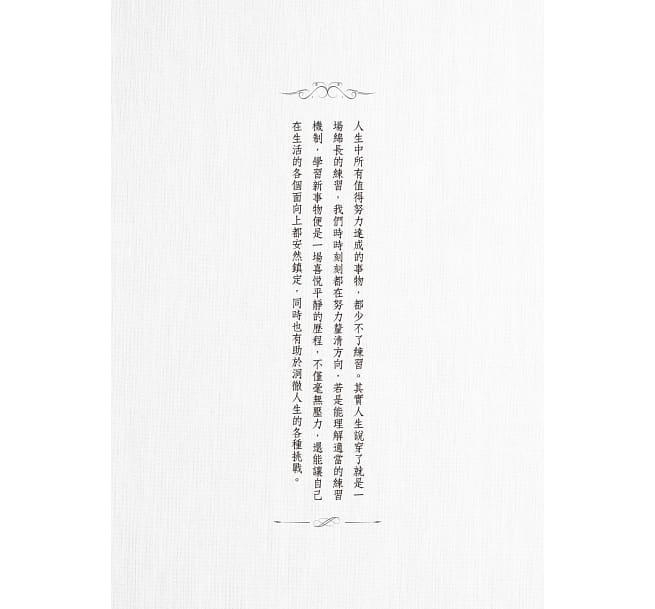 人生中所有值得努力達成的事物，都少不了練習。其實人生說穿了就是一
場綿長的練習，我們時時刻刻都在努力釐清方向，若是能理解適當的練習
機制，學習新事物便是一場喜悅平靜的歷程，不僅毫無壓力，還能讓自己
在生活的各個面向上都安然鎮定，同時也有助於洞徹人生的各種挑戰。